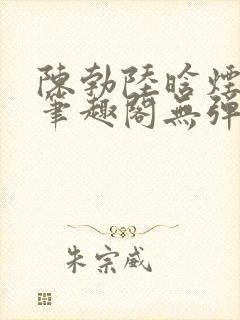 陳勃陸晗煙
筆趣閣無彈
朱宗威